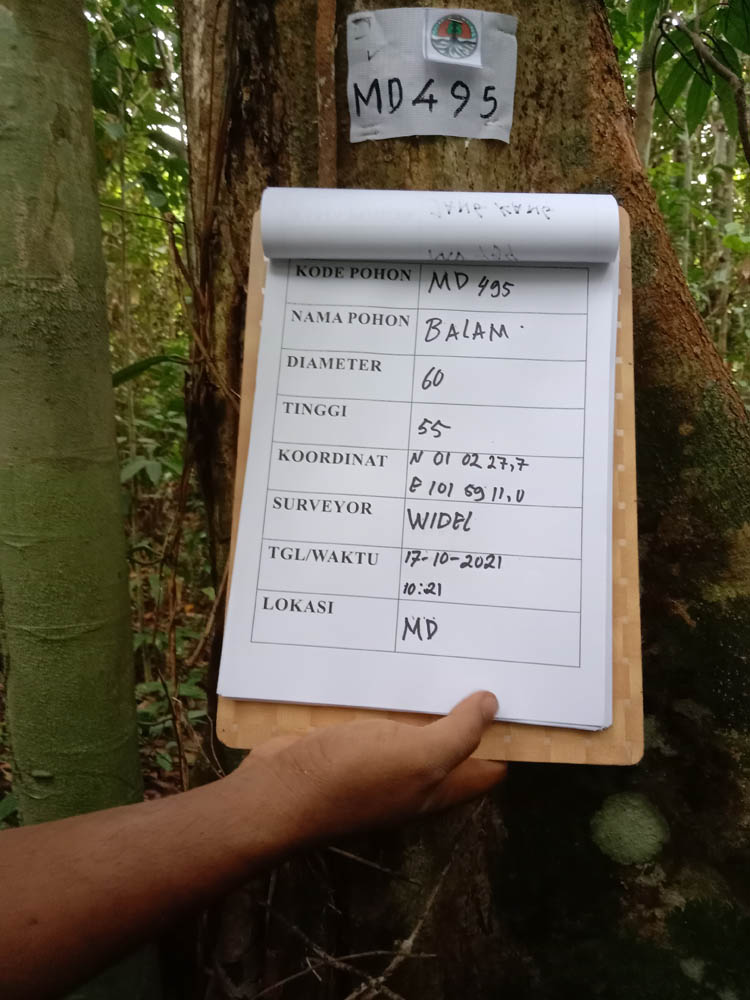 MD495
KODE POHON MD 495
NAMA POHON BALAM
DIAMETER 60
TINGGI 55
KOORDINAT N 01 02 27,7
E 101 59 11,0
SURVEYOR WIDEL
TGL/WAKTU 17-10-2021
10:21
LOKASI MD